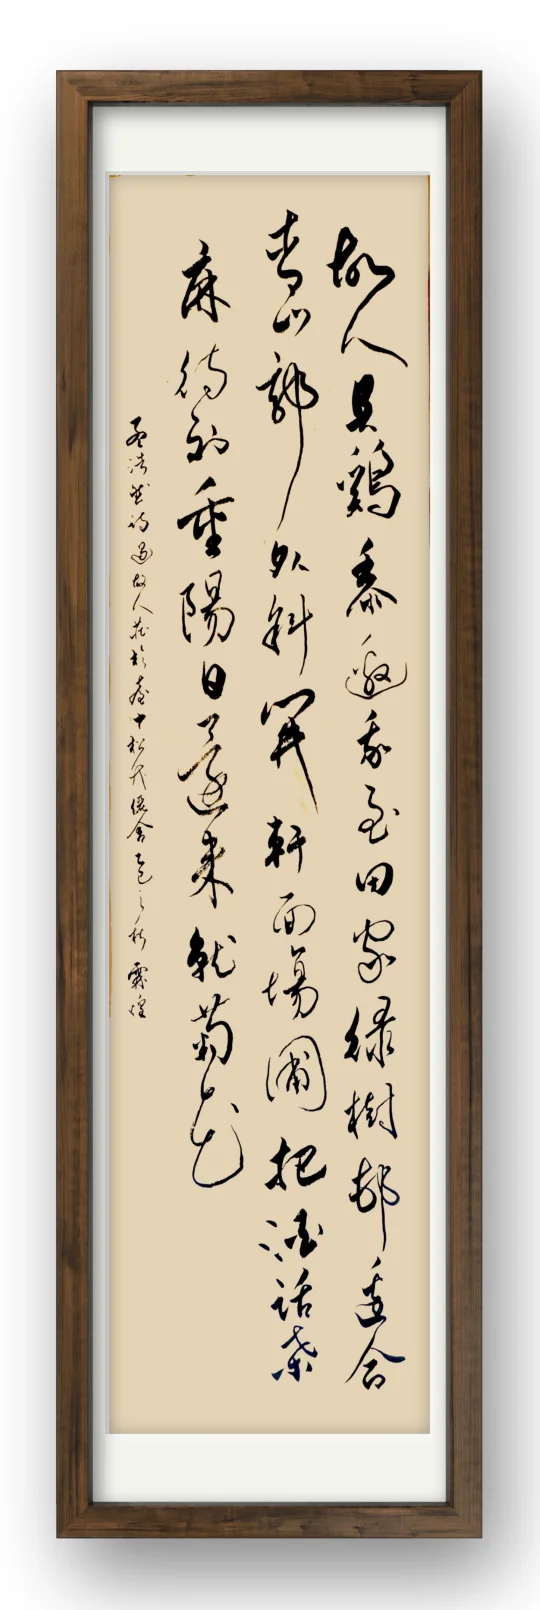 故人具鷄黍邀我至田家綠樹邨邊合
青山郭外斜開軒面場圃把酒話桑
麻待到重陽日還來就菊花
孟浩然詩過故人莊於臺中松竹 舍 之秋 煌